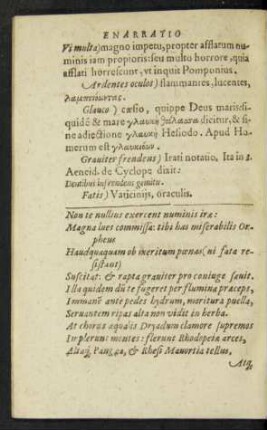 ENARRATIO
Vi multa) magno impetu, propter afflatum nu-
minis iam propioris: seu multo horrore, quia
afflati horrescunt, vt inquit Pomponius.
Ardentes oculos) flammantes, lucentes,
Glauco) cæsio, quippe Deus maris: si-
quidẽ & mare γλαυκὴ dicitur, & si-
ne adiectione γλαυκὴ Hesiodo. Apud Ho-
merum est
Grauiter frendens) Irati notatio. Ita in 3.
Aeneid. de Cyclope dixit:
Dentibus infrendens gemitu.
Fatis) Vaticinijs, oraculis.
Non te nullius exercent numinis iræ:
Magna lues commissa: tibi has miserabilis Or-
pheus
Haudquaquam ob meritum pœnas (ni fata re-
sistant)
Suscitat: & rapta grauiter pro coniuge sæuit.
Illa quidem dũ te fugeret per flumina præceps,
Immanẽ ante pedes hydrum, moritura puella,
Seruantem ripas alta non vidit in herba.
At chorus æqualis Dryadum clamore supremos
Implerunt montes: flerunt Rhodopeiæ arces,
& Rhesi Mauortia tellus,
Atq,